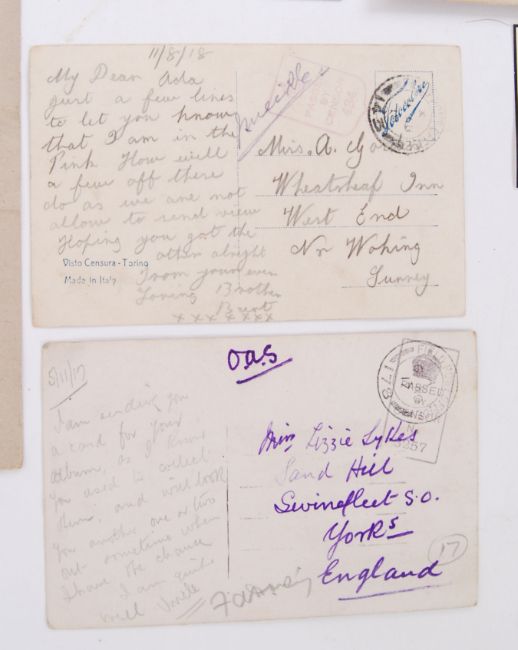 11/8/18
My Dear Ada
Just a few lines
to let you know
that I am in the
Pink How will
a few off these
do as we are not
allow to send view
Hoping you got the
other alright
from your ever
Loving Brother
Bert
x x x x x x x x
Visto Censura - Torino
Made in Italy
PASSED
BY
CENSOR
494
Mrs. A.
Wheatsheaf Inn
West End
Nr Woking
Surrey
O.A.S
5/11/17
I am sending you
a card for your
album, as I know
you used to collect
them, and will look
you another one or two
out sometime when
I have the chance
I am quite
well
FIELD
PASSED
BY
CENSOR
No
3357
Miss Lizzie Sykes
Sand Hill
Swinefleet S.O.
Yorks
England
17